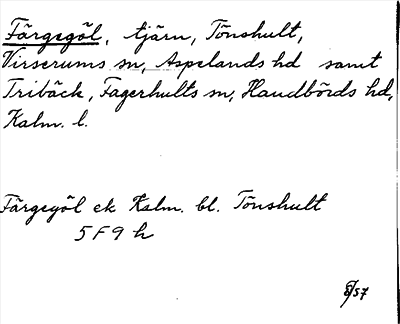 Färgegöl, tjärn, Tönshult,
Virserums sn, Aspelands hd samt
Tribäck, Fagerhults sn, Handbörds hd,
Kalm. l.
Färgegöl ek Kalm. bl. Tönshult
5 F 9 h
8/57